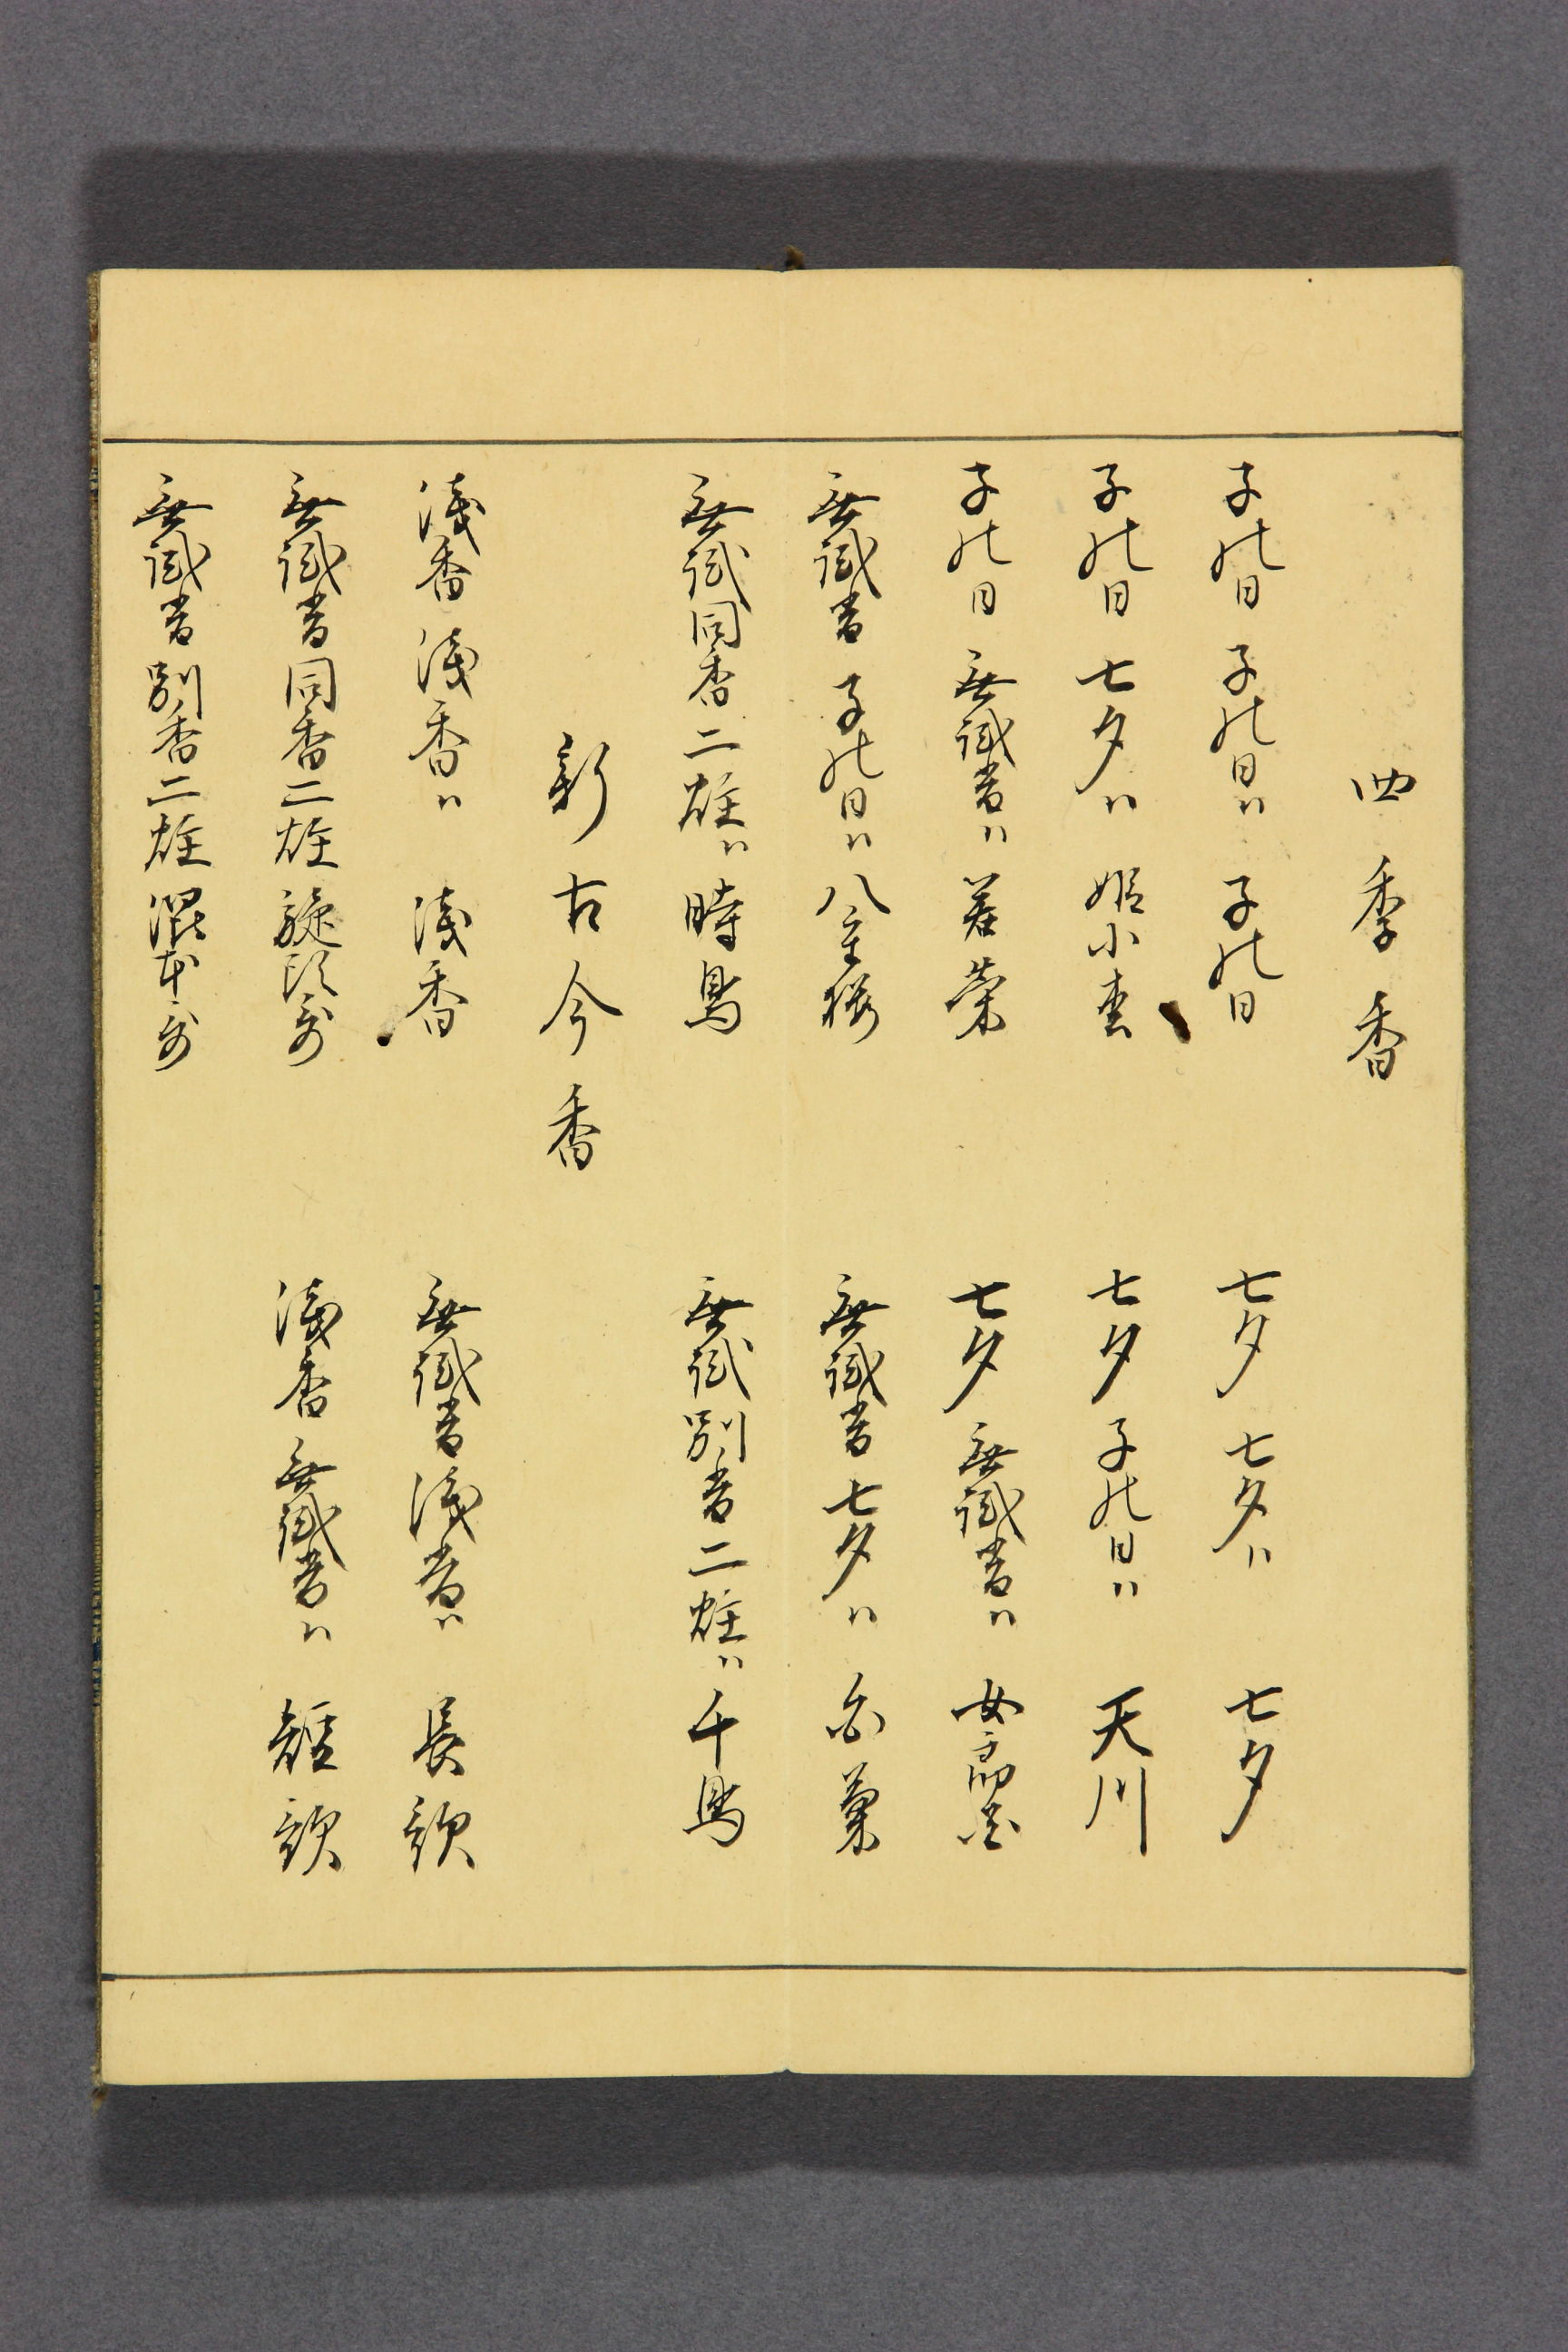 四季香
子の日 子の日ハ 子の日 七夕 七夕ハ 七夕
子の日 七夕ハ 姫小松 七夕 子の日ハ 天川
子の日 無試香ハ 若菜 七夕 無試香ハ 女郎花
無試香 子の日ハ 八重桜 無試香 七夕ハ 白菊
無試同香二炷ハ 時鳥 無試別香二炷ハ 千鳥
新古今香
浅香 浅香ハ 浅香 無試香 浅香ハ 長歌
無試香同香二炷 旋頭哥 浅香 無試香ハ 短歌
無試香別香二炷 混本哥